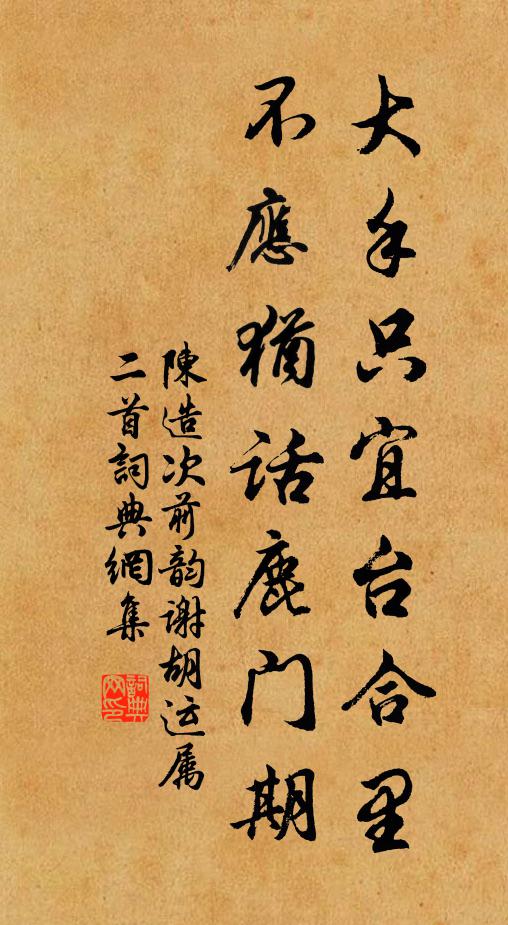 大手只宜台合里
不應猶話鹿门期
陳造次前韵谢胡运属
二首詞典網集
詞典网印